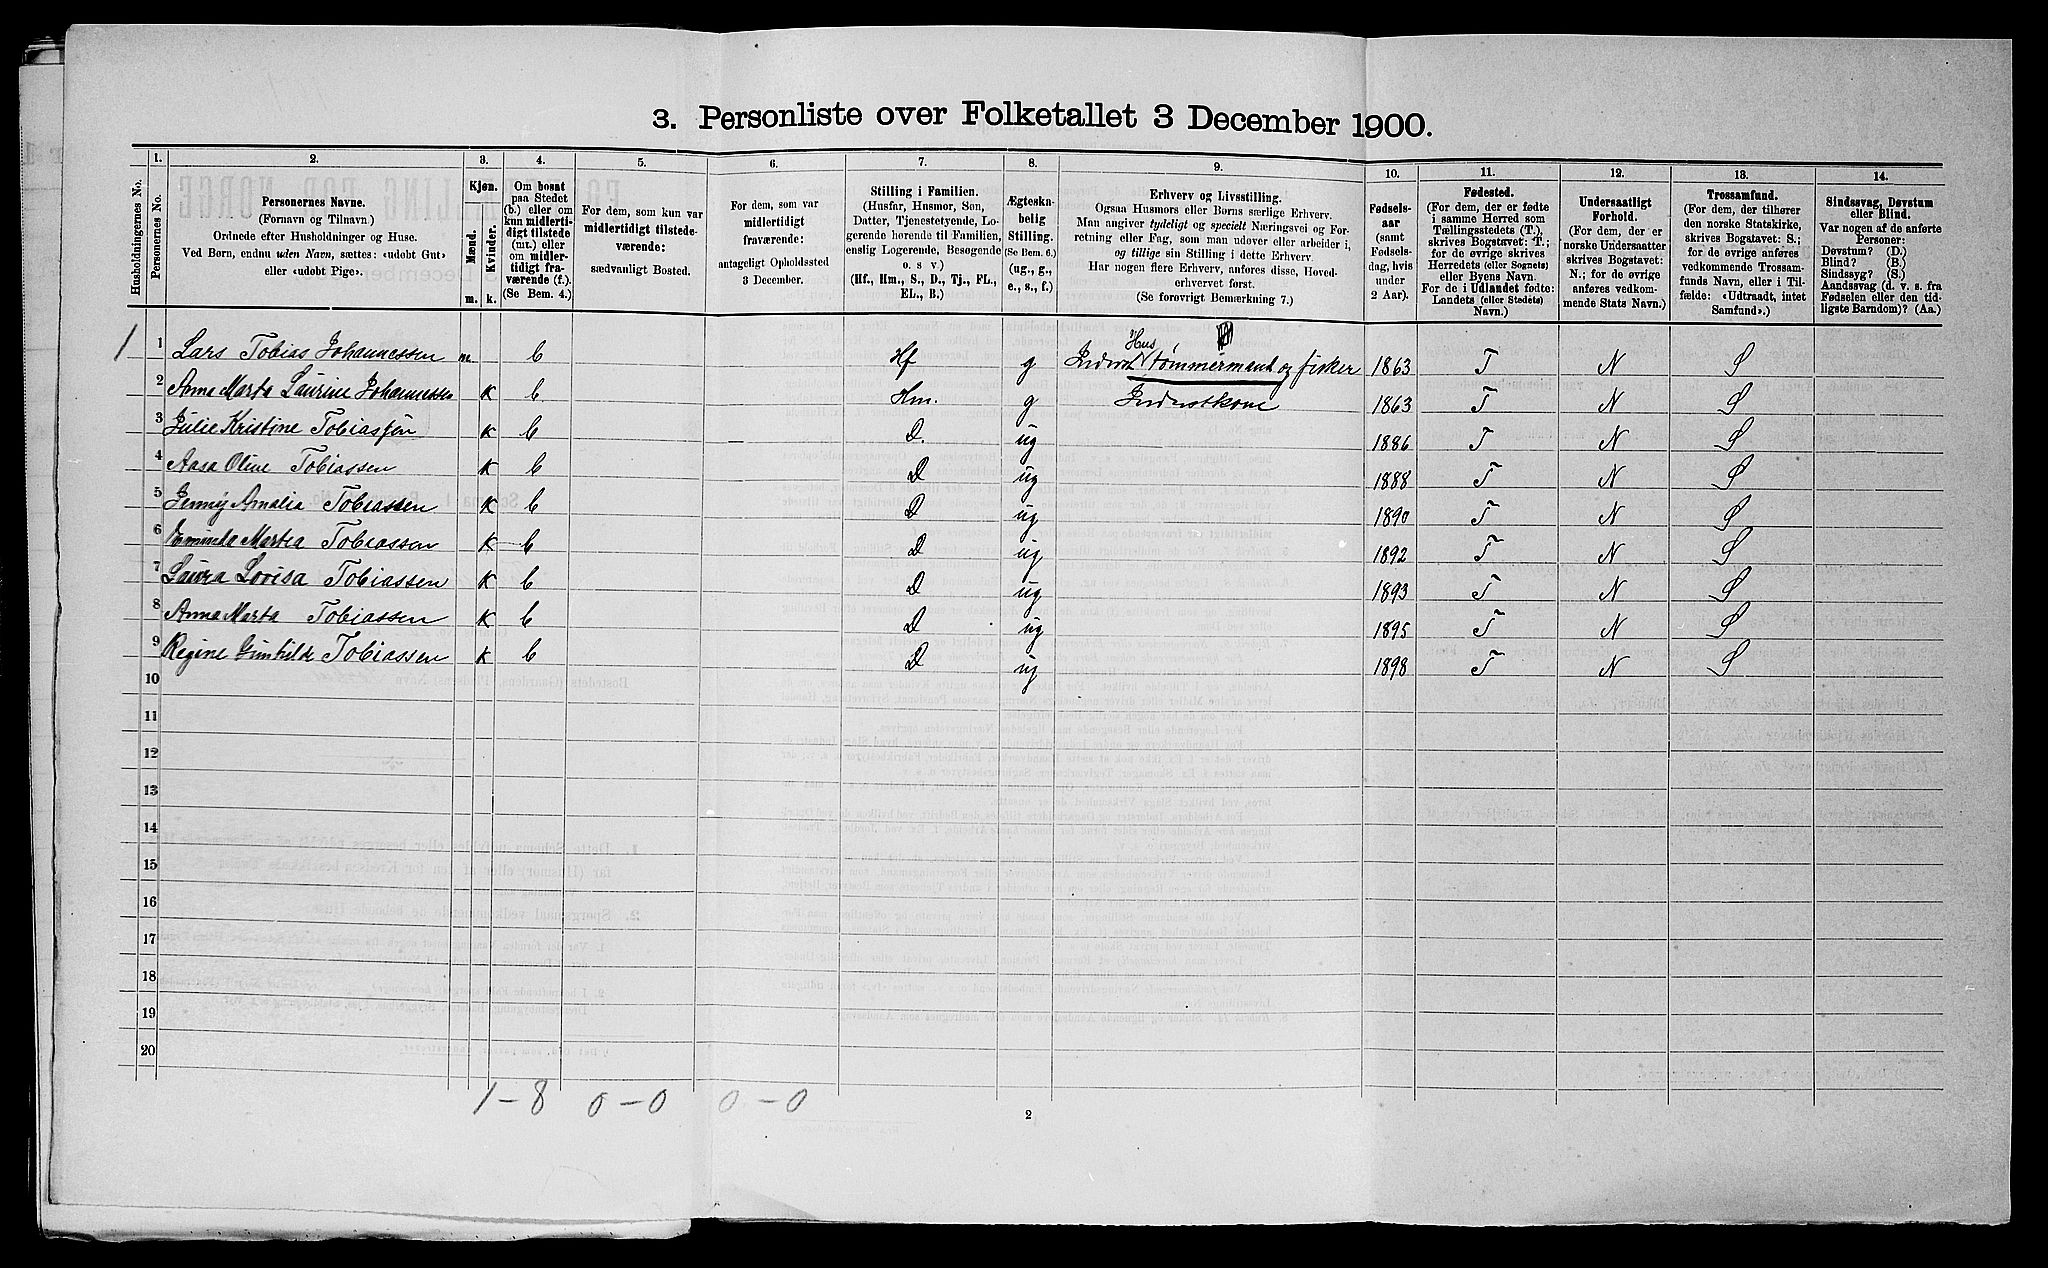 3. Personliste over Folketallet 3 December 1900.
Husholdningernes No.
1.
Personernes No.
2.
Personernes Navne.
(Fornavn og Tilnavn.)
Ordnede efter Husholdninger og Huse.
Ved Børn, endnu uden Navn, sættes: «udøbt Gut»
eller «udøbt Pige».
3.
Kjøn.
Mænd.
Kvinder.
m. k.
4.
Om bosat
paa Stedet
(b.) eller om
kun midlerti-
digt tilstede
(mt.) eller
om midler-
tidigt fra-
værende (f.).
(Se Bem. 4.)
5.
For dem, som kun var
midlertidigt tilstede-
værende:
sædvanligt Bosted.
6.
For dem, som var
midlertidigt
fraværende:
antageligt Opholdssted
3 December.
7.
Stilling i Familien.
(Husfar, Husmor, Søn,
Datter, Tjenestetyende, Lo-
gerende hørende til Familien,
enslig Logerende, Besøgende
o. s v)
(Hf., Hm., S., D., Tj., FL.,
EL., B.)
8.
Ægteska-
belig
Stilling.
(Se Bem. 6.)
(ug., g.,
e., s., f.)
9.
Erhverv og Livsstilling.
Ogsaa Husmors eller Børns særlige Erhverv.
Man angiver tydeligt og specielt Næringsvei og For-
retning eller Fag, som man udover eller arbeider i,
og tillige sin Stilling i dette Erhverv.
Har nogen flere Erhverv, anføres disse, Hoved-
erhvervet først.
(Se forøvrigt Bemærkning 7.)
10.
Fødsels-
aar
(samt
Fødsels-
dag, hvis
under
2 Aar).
11.
Fødested.
(For dem, der er fødte
i samme Herred som
Tællingsstedets (T.),
skrives Bogstavet: T.;
for de øvrige skrives
Herredets (eller Sognets)
eller Byens Navn.
For de i Udlandet fødte:
Landets (eller Stedets)
Navn.)
12.
Undersaatligt
Forhold.
(For dem, der er
norske Undersaatter
skrives Bogstavet:
N.; for de øvrige
anføres vedkom-
mende Stats Navn.)
13.
Trossamfund.
(For dem, der tilhører
den norske Statskirke,
skrives Bogstavet: S.;
for de øvrige anføres
vedkommende Trossam-
funds Navn, eller i Til-
fælde: «Udtraadt, intet
Samfund».)
14.
Sindssvag, Døvstum
eller Blind.
Var nogen af de anførte
Personer:
Døvstum? (D.)
Blind? (B.)
Sindssyg? (S.)
Aandssvag (d. v. s. fra
Fødselen eller den tid-
ligste Barndom)? (Aa.)
1 1 Lars Tobias Johannessen m. b Hf g Inderst Hus Tømmermand og fisker 1863 T N S
2 Anna Marta Laurine Johannessen K b. Hm. g Inderstkone 1863 T N S
3 Julie Kristine Tobiassen K b D. ug 1886 T N S
4 Aasa Oline Tobiassen K b D ug 1888 T N S
5 Jenny Amalia Tobiassen K b D ug 1890 T N S
6 Martea Tobiassen K b D ug 1892 T N S
7 Laura Lovisa Tobiassen K b D ug 1893 T N S
8 Anna Marta Tobiassen K b D ug 1895 T N S
9 Regine Gunhilde Tobiassen K b D ug 1898 T N S
10
11
12
13
14
15
16
17
18
19
20
1 – 8 0 – 0 0 – 0
2